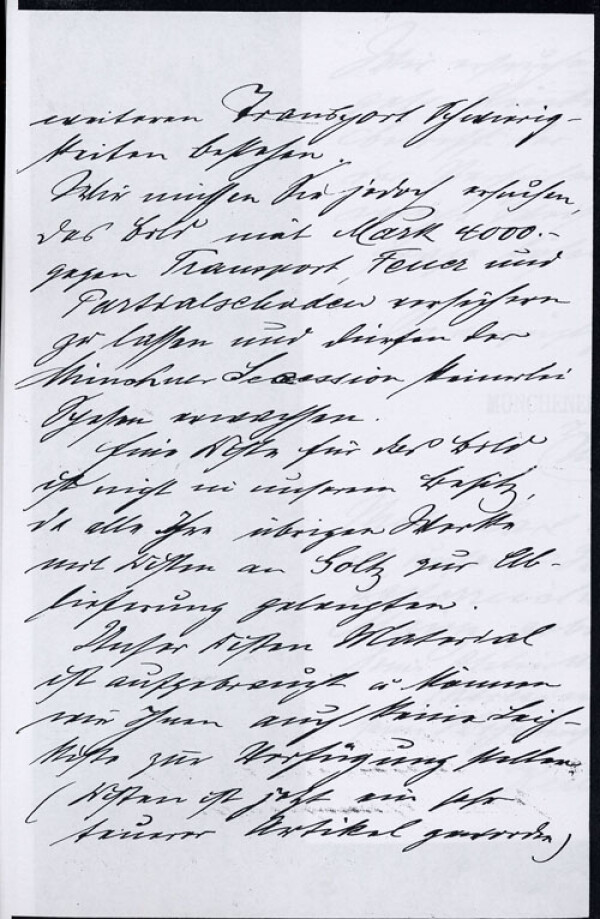 weiteren Transport Schwierig-
keiten bestehen.
Wir müssen Sie jedoch ersuchen,
das Bild mit Mark 4000.-
gegen Transport, Feuer und
Partialschaden versichern
zu lassen und dürfen der
Münchner Secession keinerlei
Spesen erwachsen.
Eine Kiste für das Bild
ist nicht in unserem Besitz,
da alle Ihre übrigen Werke
mit Kisten an Goltz zur Ab-
lieferung gelangten.
Unser Kisten Material
ist aufgebraucht u können
wir Ihnen auch keine Leih-
kiste zur Verfügung stellen
(Kisten ist jetzt ein sehr
teurer Artikel geworden)
MÜNCHENE